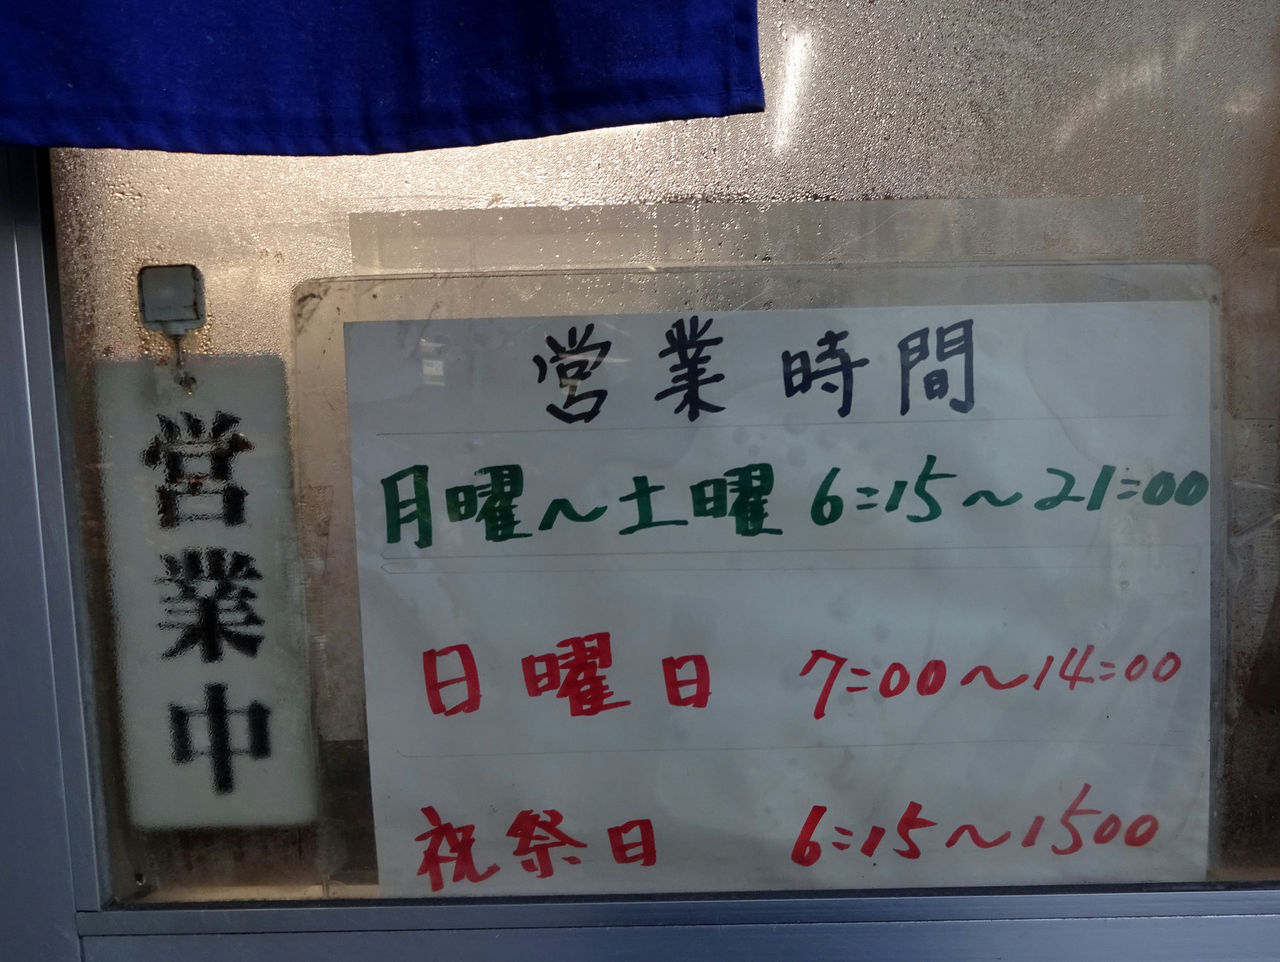 営業中
営業時間
月曜～土曜 6:15～21:00
日曜日 7:00～14:00
祝祭日 6:15～1500